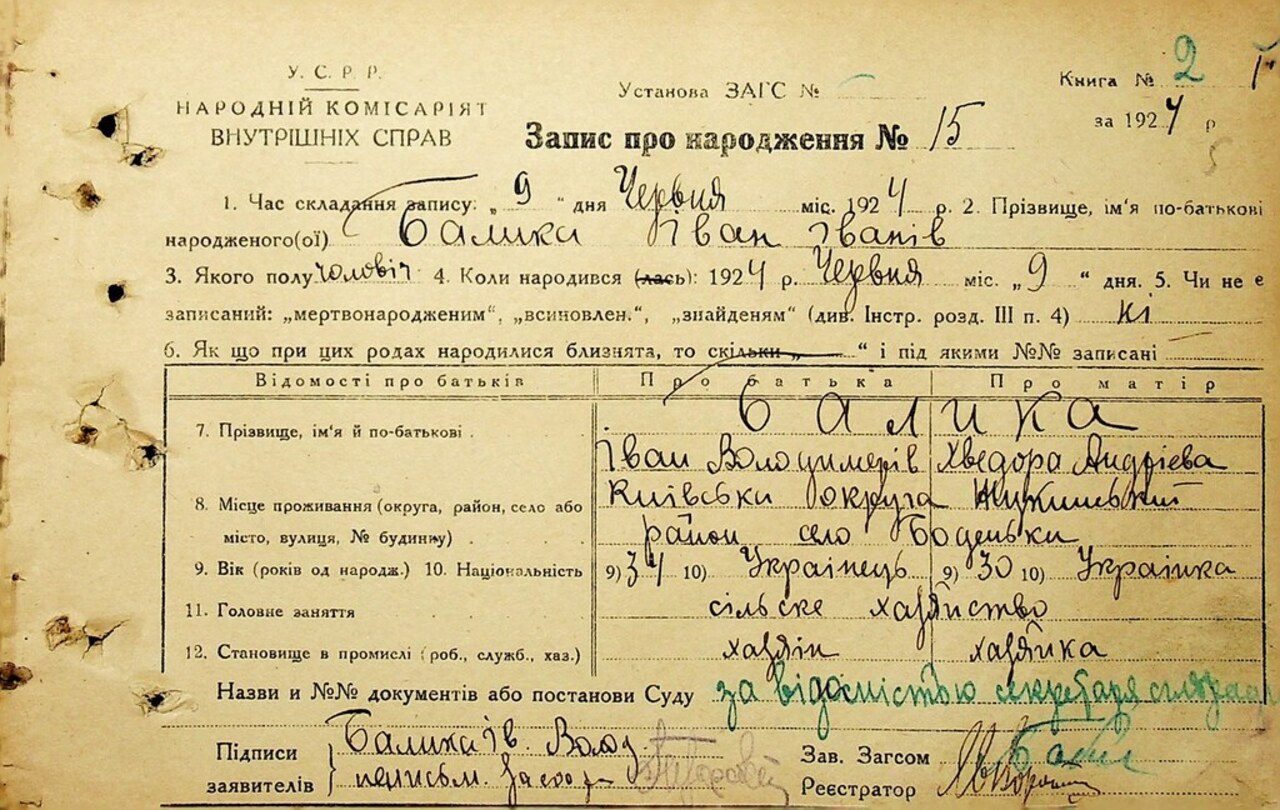 У. С. Р. Р.
НАРОДНІЙ КОМІСАРІЯТ
ВНУТРІШНІХ СПРАВ
Установа ЗАГС №
Книга № 2
за 1924 р
Запис про народження № 15
1. Час складання запису: „ 9 “ дня Червня міс. 1924 р. 2. Прізвище, ім'я по-батькові
народженого(ої) Балика Іван Іванів
3. Якого полу чоловіч 4. Коли народився (лась): 1924 р. Червня міс. „ 9 “ дня. 5. Чи не є
записаний: „мертвонародженим“, „всиновлен.“, „знайденям“ (див. Інстр. розд. III п. 4) ні
6. Як що при цих родах народилися близнята, то скільки „ “ і під якими №№ записані
Відомості про батьків Про батька Про матір
7. Прізвище, ім'я й по-батькові Балика
Іван Володимерів Хведора Андрієва
8. Місце проживання (округа, район, село або Київська округа Жукинський
місто, вулиця, № будинку) район село Боденьки
9. Вік (років од народж.) 10. Національність 9) 34 10) Українець 9) 30 10) Українка
11. Головне заняття сільське хазяйство
12. Становище в промислі (роб., служб., хаз.) хазяін хазяйка
Назви и №№ документів або постанови Суду за відомістью секретаря
Підписи Балика Ів. Волод.
заявителів неписьм.
Зав. Загсом
Реєстратор